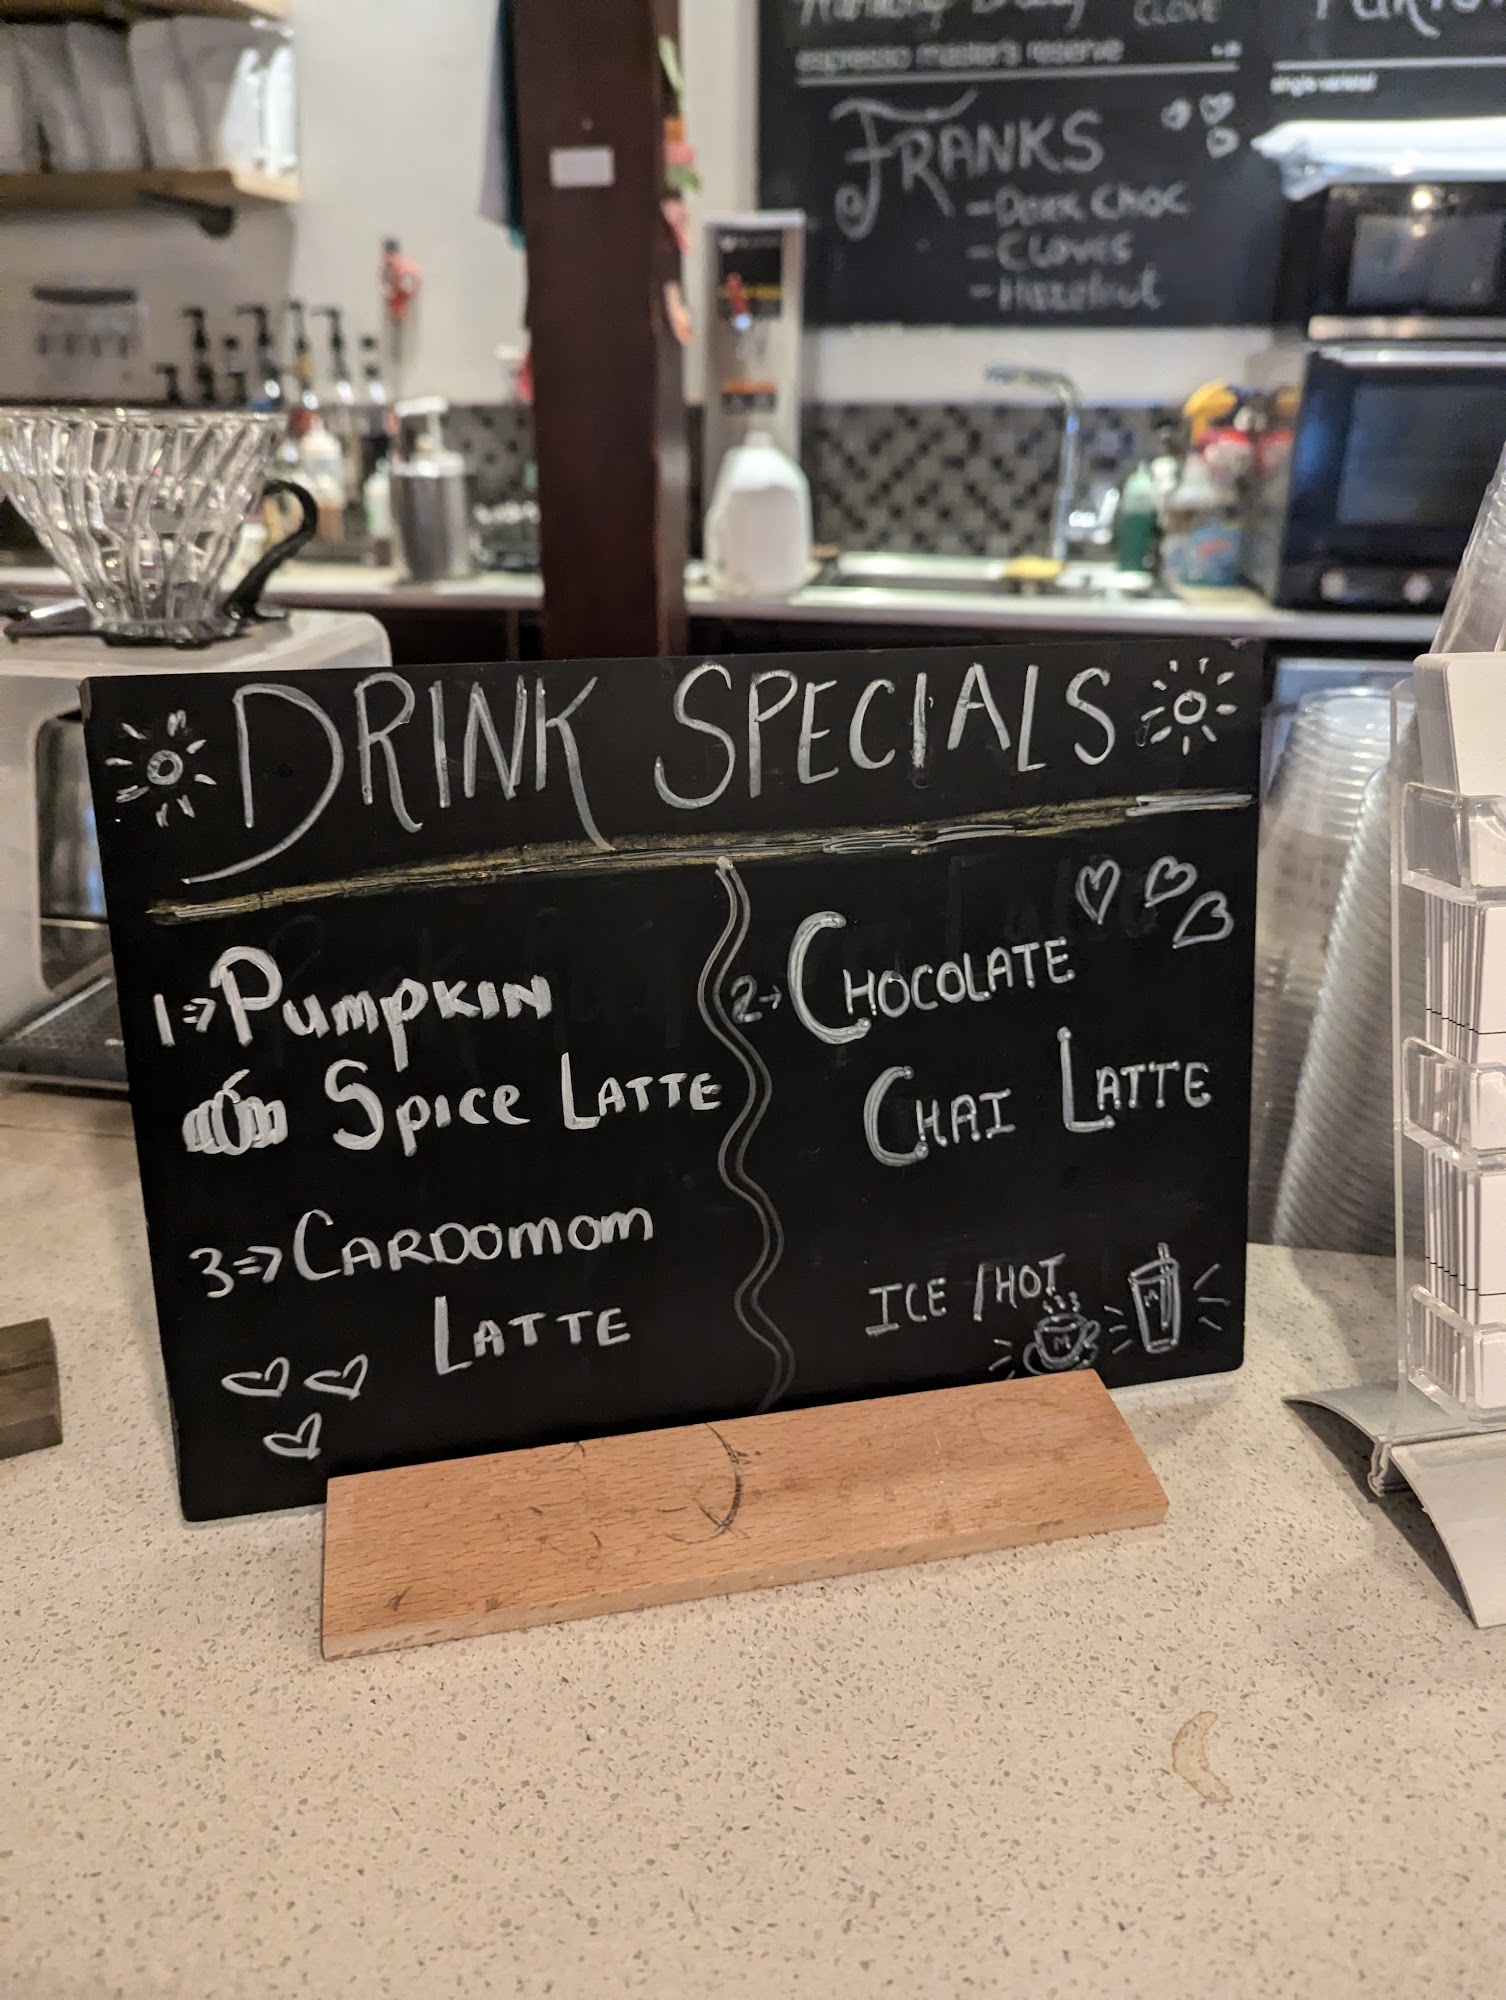 CLOVE
espresso master's reserve
single varietal
FRANKS
- Dark Choc
- Cloves
- Hazelnut
DRINK SPECIALS
1⇒ Pumpkin
Spice Latte
2→ Chocolate
Chai Latte
3⇒ Cardomom
Latte
ICE / HOT